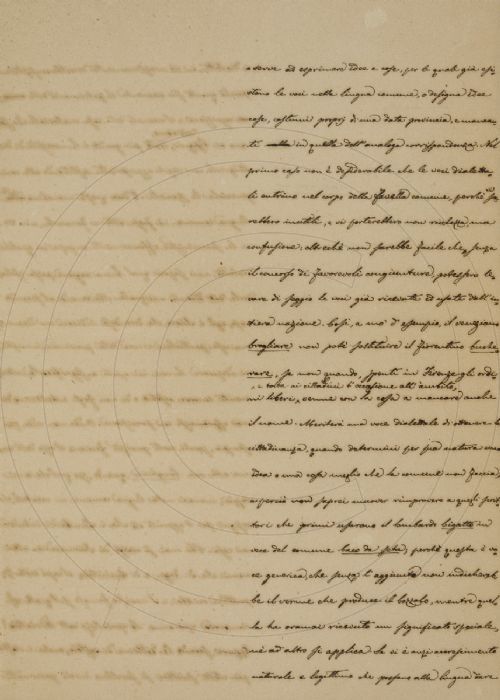 o serve ad esprimere idee e cose, per le quali già esi-
stono le voci nella lingua comune, o designa idee
cose, costumi proprj di una data provincia, e mancan-
ti in quella dell'analoga corrispondenza. Nel
primo caso non è desiderabile che le voci dialetta-
li entrino nel corpo della favella comune, perchè vi sa
rebbero inutili, e vi porterebbero non ricchezza, ma
confusione; oltrecchè non sarebbe facile che, senza
il concorso di favorevoli congiunture, potessero le-
vare di seggio le voci già ricevute ed usate dall'in-
tiera nazione. Così, a mo' d'esempio, il veneziano
brogliare non potè sostituire il fiorentino buche
rare, se non quando, spenti in Firenze gli ordi-
, e tolta ai cittadini l'occasione all'ambito,
ni liberi, venne con la cosa a mancare anche
il nome. Meriterà una voce dialettale di ottenere la
cittadinanza, quando determini per sua natura una
idea o una cosa meglio che la comune non faccia,
e perciò non saprei muover rimprovero a quegli scrit-
tori che primi usarono il lombardo bigatto in
vece del comune baco da seta; perchè questa è vo-
ce generica, che senza l'aggiunta non indichereb
be il verme che produce il bozzolo, mentre quel
la ha oramai ricevuto un significato speciale,
nè ad altro si applica. Se vi è anzi accrescimento
naturale e legittimo che possano alla lingua dare